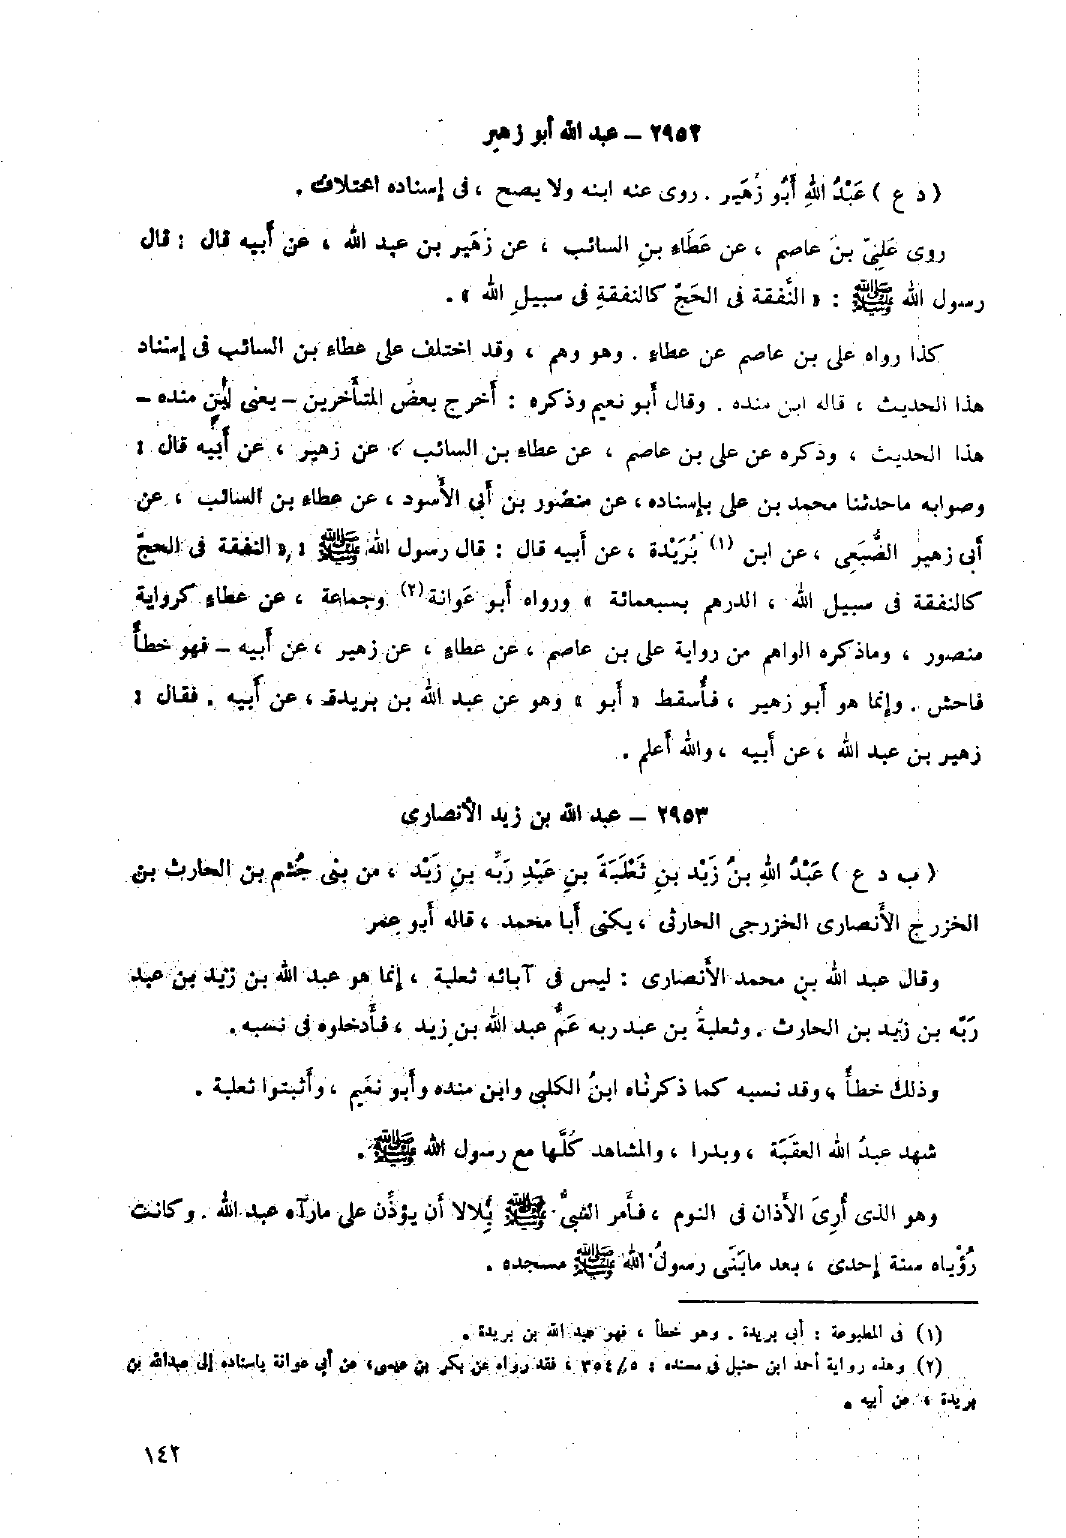 ٢٩٥٢ – عبد الله أبو زهير
( د ع ) عَبْدُ اللهِ أَبُو زُهَير . روى عنه ابنه ولا يصح ، فى إسناده اختلاف .
روى عَلِيّ بنَ عاصم ، عن عَطَاءِ بنِ السائب ، عن زهَير بن عبد الله ، عن أَبيه قال : قال
رسول الله ﷺ : « النَّفقة فى الحَجّ كالنفقةِ فى سبيلِ الله » .
كذا رواه على بن عاصم عن عطاءِ . وهو وهم ، وقد اختلف على عطاءِ بن السائب فى إسناد
هذا الحديث ، قاله ابن منده . وقال أَبو نعيم وذكره : أَخرج بعضُ المتأَخرين – يعنى ابْن منده –
هذا الحديث ، وذكره عن على بن عاصم ، عن عطاءِ بن السائب ، عن زهير ، عن أَبيه قال :
وصوابه ماحدثنا محمد بن على بإسناده ، عن منصور بن أَبى الأَسود ، عن عطاءِ بن السائب ، عن
أَبى زهير الضُّبَعِى ، عن ابن (١) بُرَيْدة ، عن أَبيه قال : قال رسول الله ﷺ : « النفقة فى الحجّ
كالنفقة فى سبيل الله ، الدرهم بسبعمائة » ورواه أَبو عَوانة(٢) وجماعة ، عن عطاءِ كرواية
منصور ، وماذكره الواهم من رواية على بن عاصم ، عن عطاءِ ، عن زهير ، عن أَبيه – فهو خطأٌ
فاحش . وإنما هو أَبو زهير ، فأَسقط « أَبو » وهو عن عبد الله بن بريدة ، عن أَبيه . فقال :
زهير بن عبد الله ، عن أَبيه ، والله أَعلم .
٢٩٥٣ – عبد الله بن زيد الأنصارى
( ب د ع ) عَبْدُ اللهِ بنُ زَيْد بنِ ثَعْلَبَةَ بنِ عَبْدِ رَبِّه بنِ زَيْد ، من بنى جُشم بن الحارث بن
الخزرج الأَنصارى الخزرجى الحارثى ، يكنى أَبا محمد ، قاله أَبو عمر
وقال عبد الله بن محمد الأَنصارى : ليس فى آبائه ثعلبة ، إنما هو عبد الله بن زيد بن عبد
رَبّه بن زيد بن الحارث . وثعلبةُ بن عبد ربه عَمُّ عبد الله بن زيد ، فأَدخلوه فى نسبه.
وذلك خطأٌ ، وقد نسبه كما ذكرناه ابنُ الكلبى وابن منده وأَبو نعَيم ، وأَثبتوا ثعلبة .
شهد عبدُ الله العقَبَة ، وبدرا ، والمشاهد كُلَّها مع رسول الله ﷺ .
وهو الذى أُرِىَ الأَذان فى النوم ، فأَمر النبىُّ ﷺ بِلالا أَن يؤذِّن على مارآه عبد الله . وكانت
رُؤْياه سنة إحدى ، بعد مابَنَى رسولُ الله ﷺ مسجده .
(١) فى المطبوعة : أبى بريدة . وهو خطأ ، فهو عبد الله بن بريدة .
(٢) وهذه رواية أحمد ابن حنبل فى مسنده : ٣٥٤/٥ ، فقد رواه عن بكر بن عيسى ، عن أبى عوانة بإسناده إلى عبدالله بن
بريدة ، عن أبيه .
١٤٢